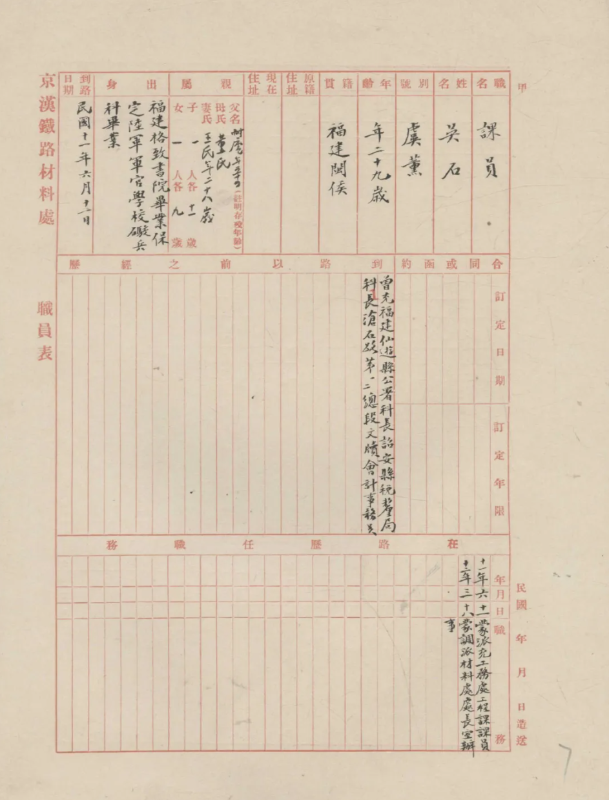 甲
職名
課員
姓名
吳石
別號
虞薰
年齡
年二十九歲
籍貫
福建閩侯
原籍住址
現在住址
親屬
父名
(註明存歿年齡)
母氏
董氏
妻氏
王氏年二十八歲
子 一 人各 十一 歲
女 一 人各 九 歲
出身
福建格致書院畢業保
定陸軍軍官學校礮兵
科畢業
到路日期
民國十一年六月十一日
合同或函約
訂定日期
訂定年限
到路以前之經歷
曾充福建仙遊縣公署科長詔安縣稅釐局
科長滄石路第一二總段文牘會計事務員
在路歷任職務
年月日
職務
十一年六 十一 蒙派充工務處工程課課員
十二年三 十八 蒙調派材料處處長室辦
事
民國 年 月 日造送
京漢鐵路材料處 職員表
7